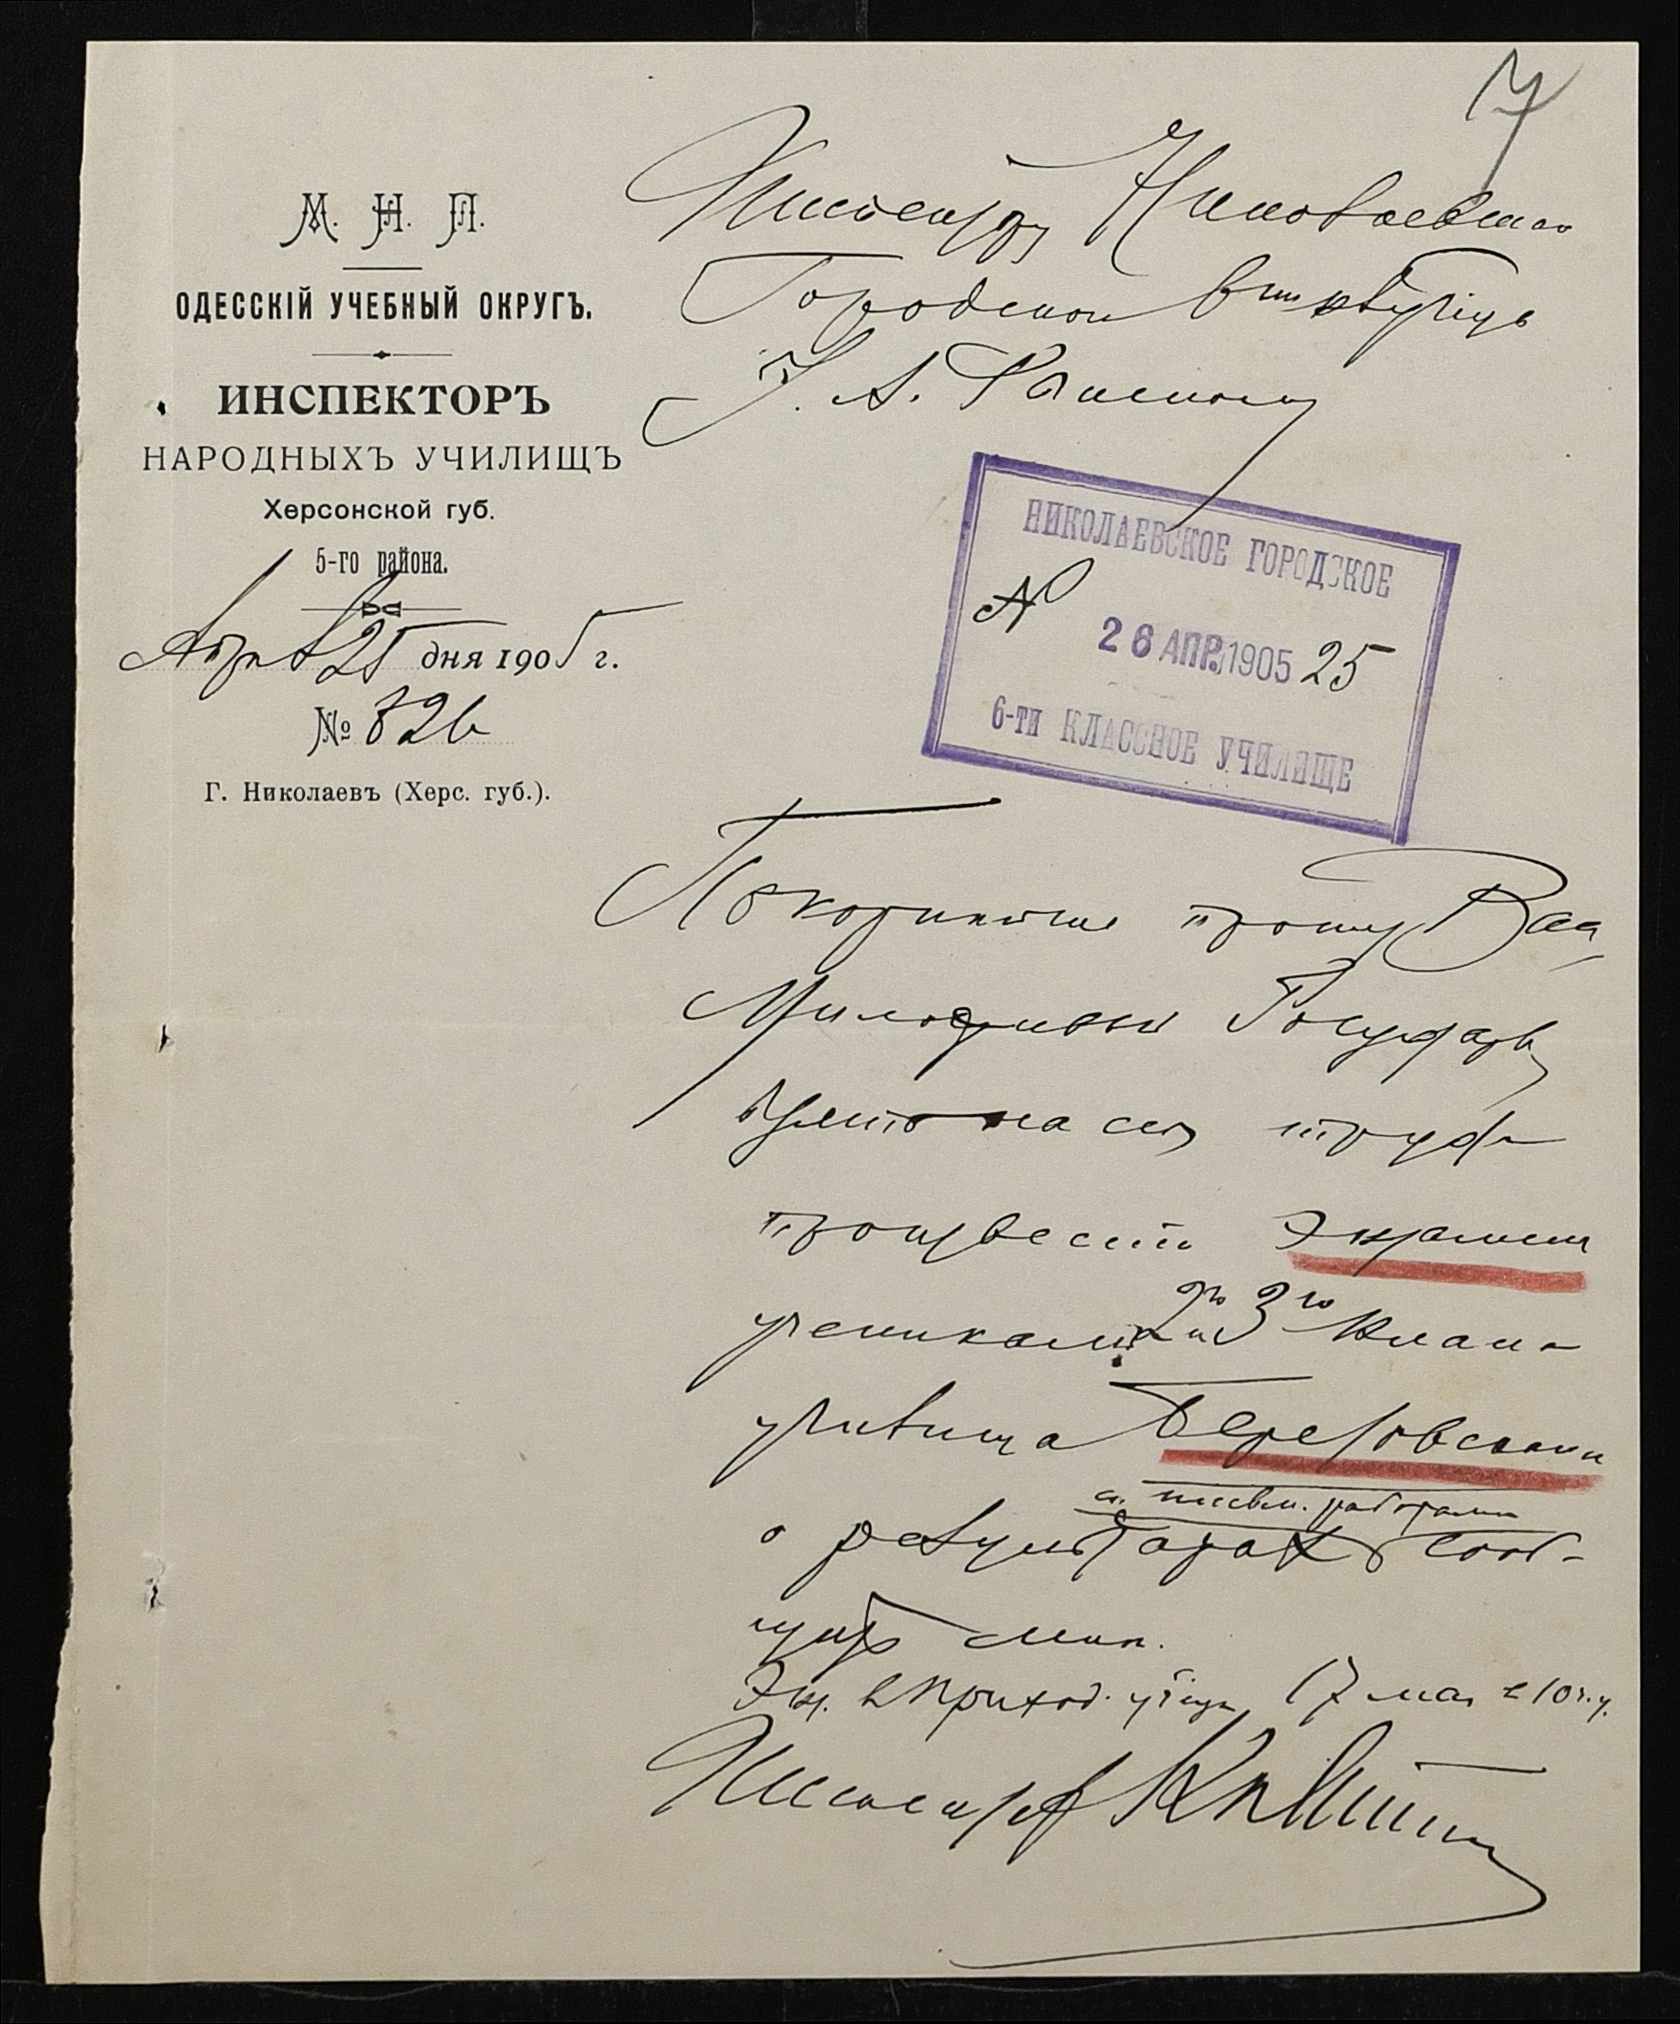 7
М. Н. П.
ОДЕССКІЙ УЧЕБНЫЙ ОКРУГЪ.
ИНСПЕКТОРЪ
НАРОДНЫХЪ УЧИЛИЩЪ
Херсонской губ.
5-го района.
Апр 25 дня 1905 г.
№ 826
Г. Николаевъ (Херс. губ.).
Инспектору Николаевскаго
Городского
А.
НИКОЛАЕВСКОЕ ГОРОДСКОЕ
№ 26 АПР. 1905 25
6-ти КЛАССНОЕ УЧИЛИЩЕ
Покорнѣйше прошу Васъ,
Милостивый Государь,
взять на себя трудъ
произвести экзамен
ученикамъ 2го и 3го класса
училища Березовскаго и
съ письм. работами
о результатахъ сооб-
щить мнѣ.
Экз. в приход. уч-щѣ 17 мая в 10 ч. у.
Инспекторъ